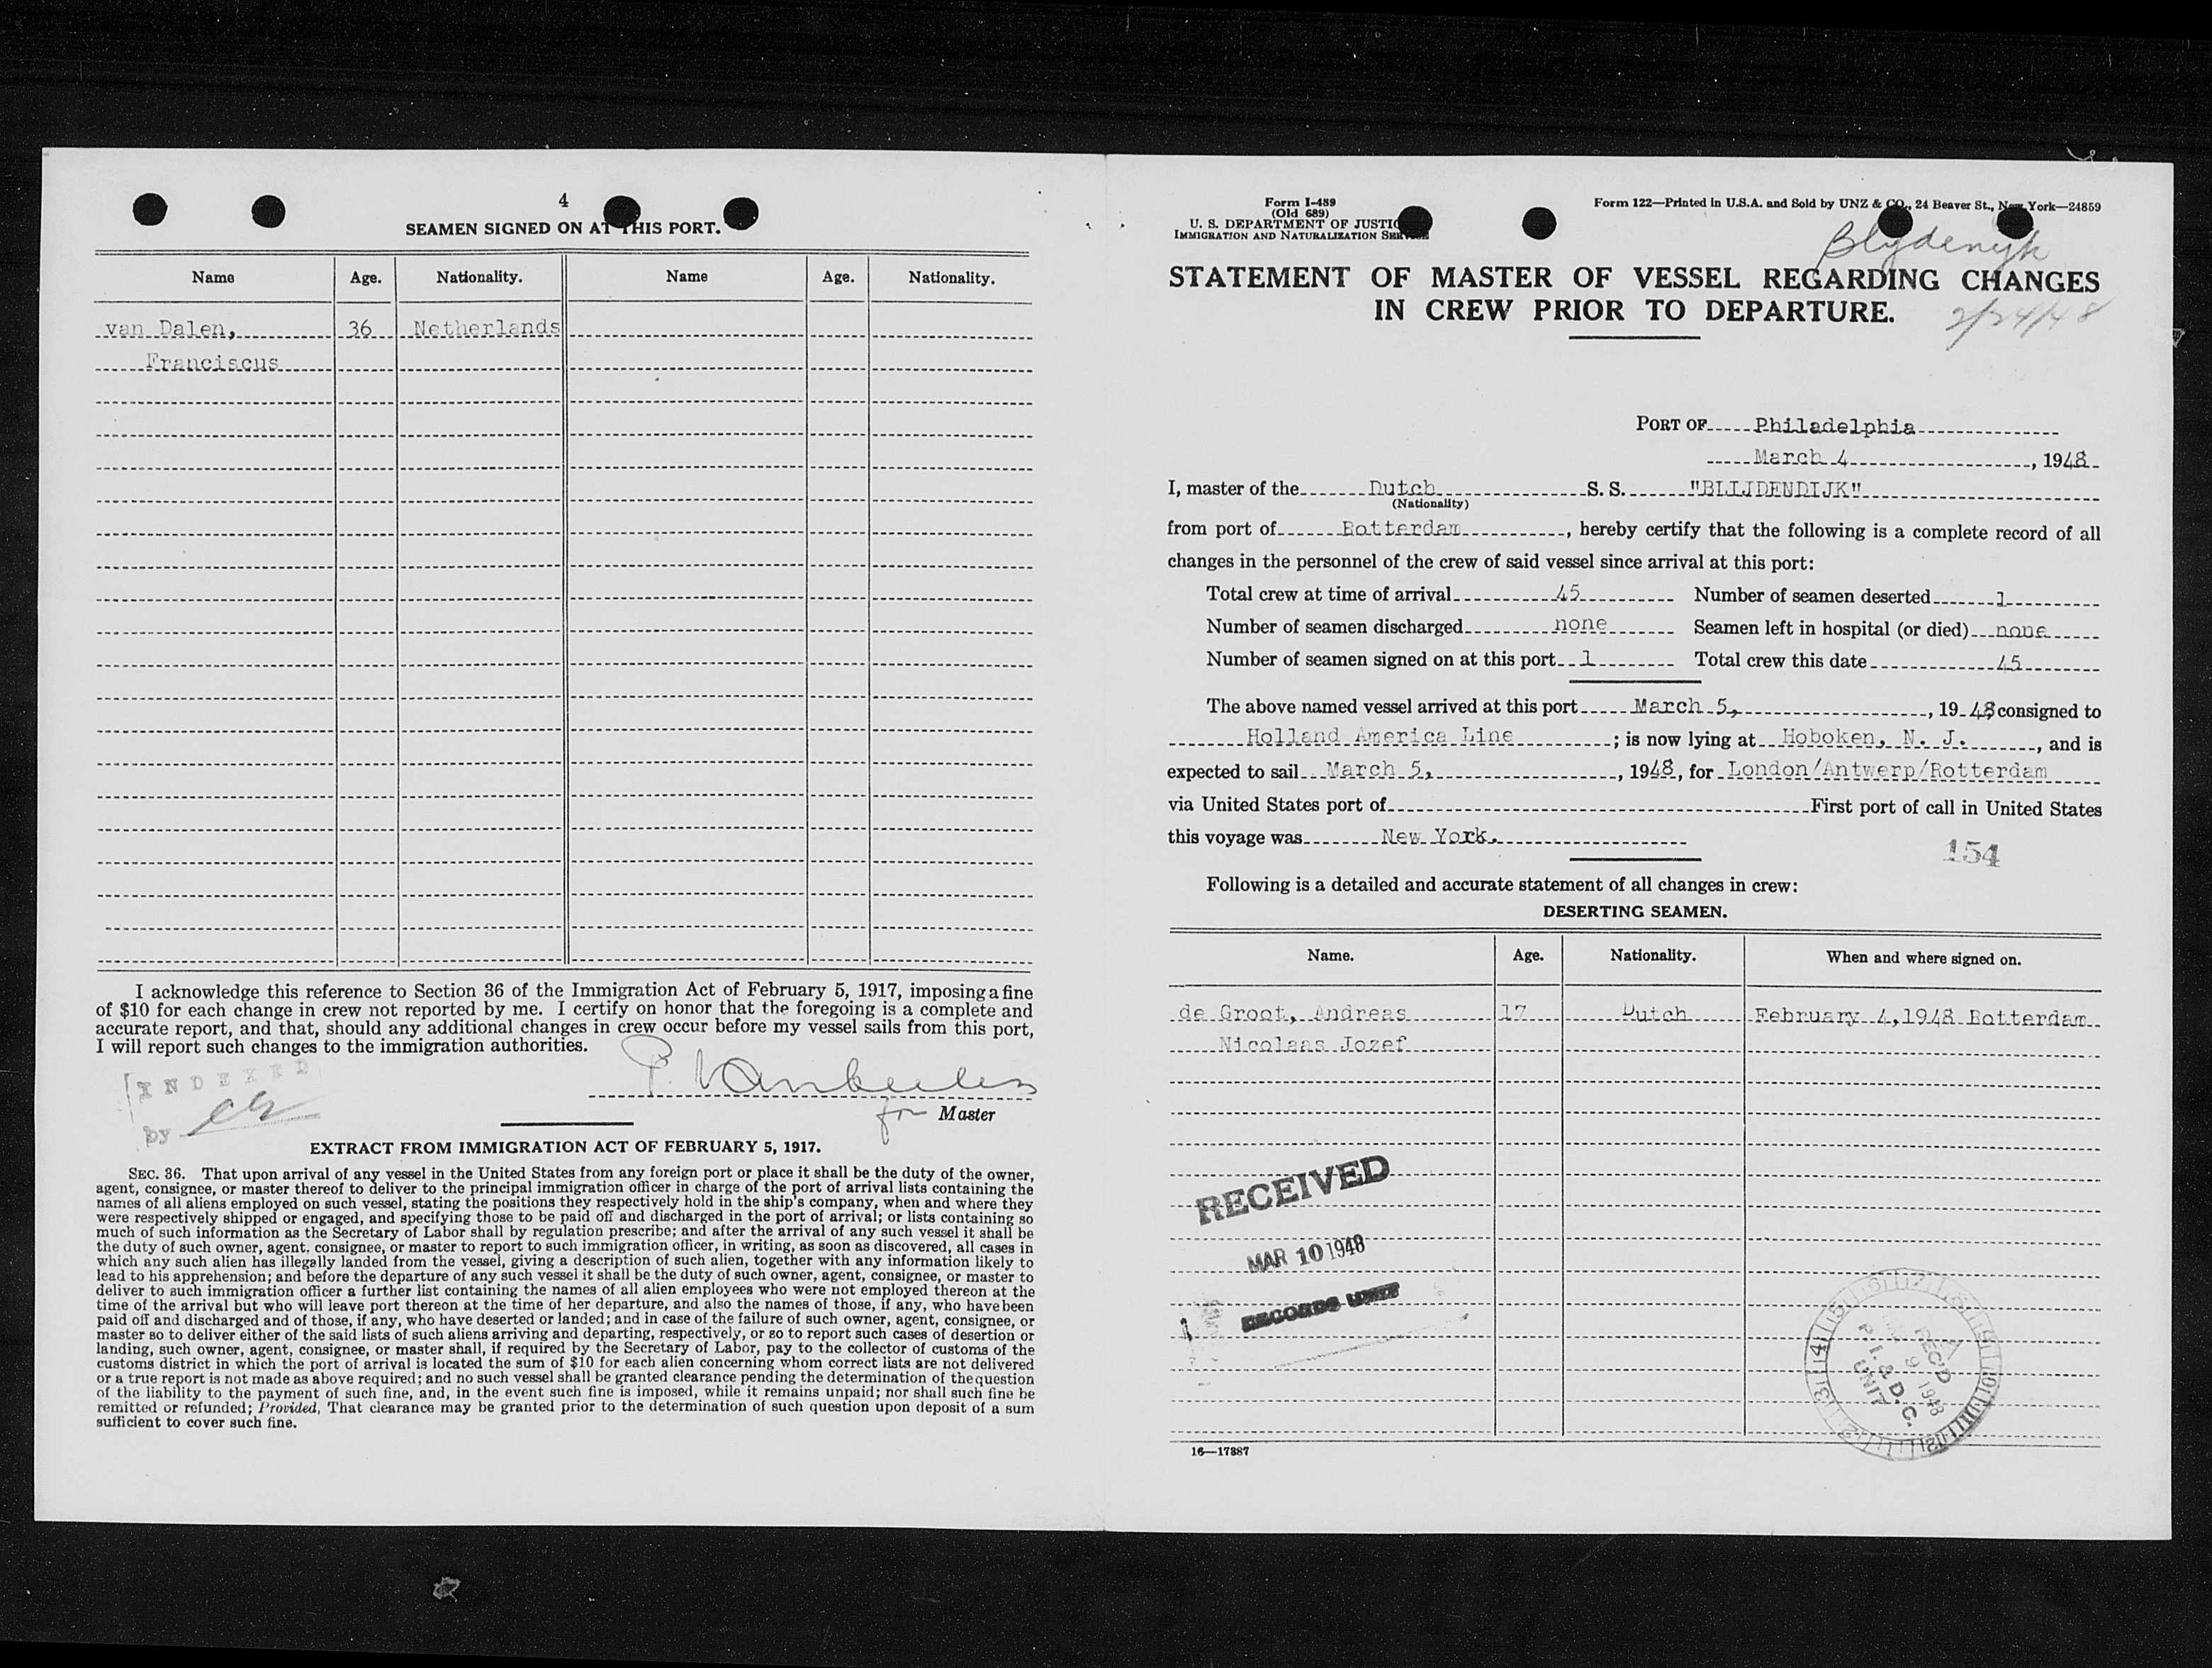 4
SEAMEN SIGNED ON AT THIS PORT.
Name Age. Nationality. Name Age. Nationality.
van Dalen, 36 Netherlands
Franciscus
I acknowledge this reference to Section 36 of the Immigration Act of February 5, 1917, imposing a fine
of $10 for each change in crew not reported by me. I certify on honor that the foregoing is a complete and
accurate report, and that, should any additional changes in crew occur before my vessel sails from this port,
I will report such changes to the immigration authorities.
INDEXED
by
for Master
EXTRACT FROM IMMIGRATION ACT OF FEBRUARY 5, 1917.
SEC. 36. That upon arrival of any vessel in the United States from any foreign port or place it shall be the duty of the owner,
agent, consignee, or master thereof to deliver to the principal immigration officer in charge of the port of arrival lists containing the
names of all aliens employed on such vessel, stating the positions they respectively hold in the ship's company, when and where they
were respectively shipped or engaged, and specifying those to be paid off and discharged in the port of arrival; or lists containing so
much of such information as the Secretary of Labor shall by regulation prescribe; and after the arrival of any such vessel it shall be
the duty of such owner, agent, consignee, or master to report to such immigration officer, in writing, as soon as discovered, all cases in
which any such alien has illegally landed from the vessel, giving a description of such alien, together with any information likely to
lead to his apprehension; and before the departure of any such vessel it shall be the duty of such owner, agent, consignee, or master to
deliver to such immigration officer a further list containing the names of all alien employees who were not employed thereon at the
time of the arrival but who will leave port thereon at the time of her departure, and also the names of those, if any, who have been
paid off and discharged and of those, if any, who have deserted or landed; and in case of the failure of such owner, agent, consignee, or
master so to deliver either of the said lists of such aliens arriving and departing, respectively, or so to report such cases of desertion or
landing, such owner, agent, consignee, or master shall, if required by the Secretary of Labor, pay to the collector of customs of the
customs district in which the port of arrival is located the sum of $10 for each alien concerning whom correct lists are not delivered
or a true report is not made as above required; and no such vessel shall be granted clearance pending the determination of the question
of the liability to the payment of such fine, and, in the event such fine is imposed, while it remains unpaid; nor shall such fine be
remitted or refunded; Provided, That clearance may be granted prior to the determination of such question upon deposit of a sum
sufficient to cover such fine.
Form I-489
(Old 689)
U. S. DEPARTMENT OF JUSTICE
IMMIGRATION AND NATURALIZATION SERVICE
Form 122—Printed in U.S.A. and Sold by UNZ & CO., 24 Beaver St., New York—24859
Blydendyk
STATEMENT OF MASTER OF VESSEL REGARDING CHANGES
IN CREW PRIOR TO DEPARTURE.
2/24/48
PORT OF Philadelphia
March 4, 1948
I, master of the Dutch S. S. "BLIJDENDIJK"
(Nationality)
from port of Rotterdam, hereby certify that the following is a complete record of all
changes in the personnel of the crew of said vessel since arrival at this port:
Total crew at time of arrival 45 Number of seamen deserted 1
Number of seamen discharged none Seamen left in hospital (or died) none
Number of seamen signed on at this port 1 Total crew this date 45
The above named vessel arrived at this port March 5, , 1948 consigned to
Holland America Line ; is now lying at Hoboken, N. J. , and is
expected to sail March 5, , 1948, for London/Antwerp/Rotterdam
via United States port of First port of call in United States
this voyage was New York.
154
Following is a detailed and accurate statement of all changes in crew:
DESERTING SEAMEN.
Name. Age. Nationality. When and where signed on.
de Groot, Andreas 17 Dutch February 4, 1948 Rotterdam
Nicolaas Jozef
RECEIVED
MAR 10 1948
RECORDS UNIT
REC'D
9 1948
P. I. & D. C.
UNIT
16—17387